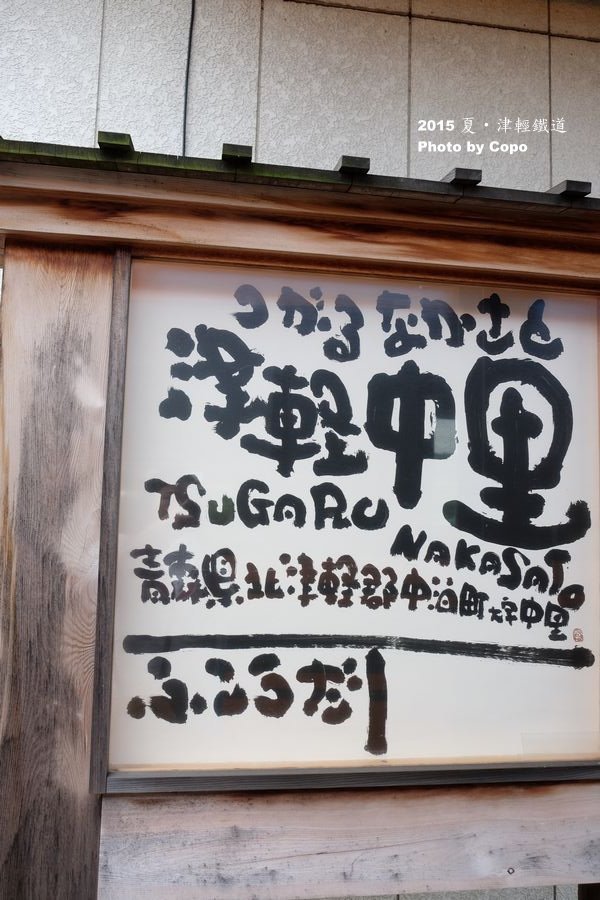 2015 夏・津輕鐵道
Photo by Copo
つがるなかさと
津軽中里
TSUGARU
NAKASATO
青森県北津軽郡中泊町大字中里
ふこうだ